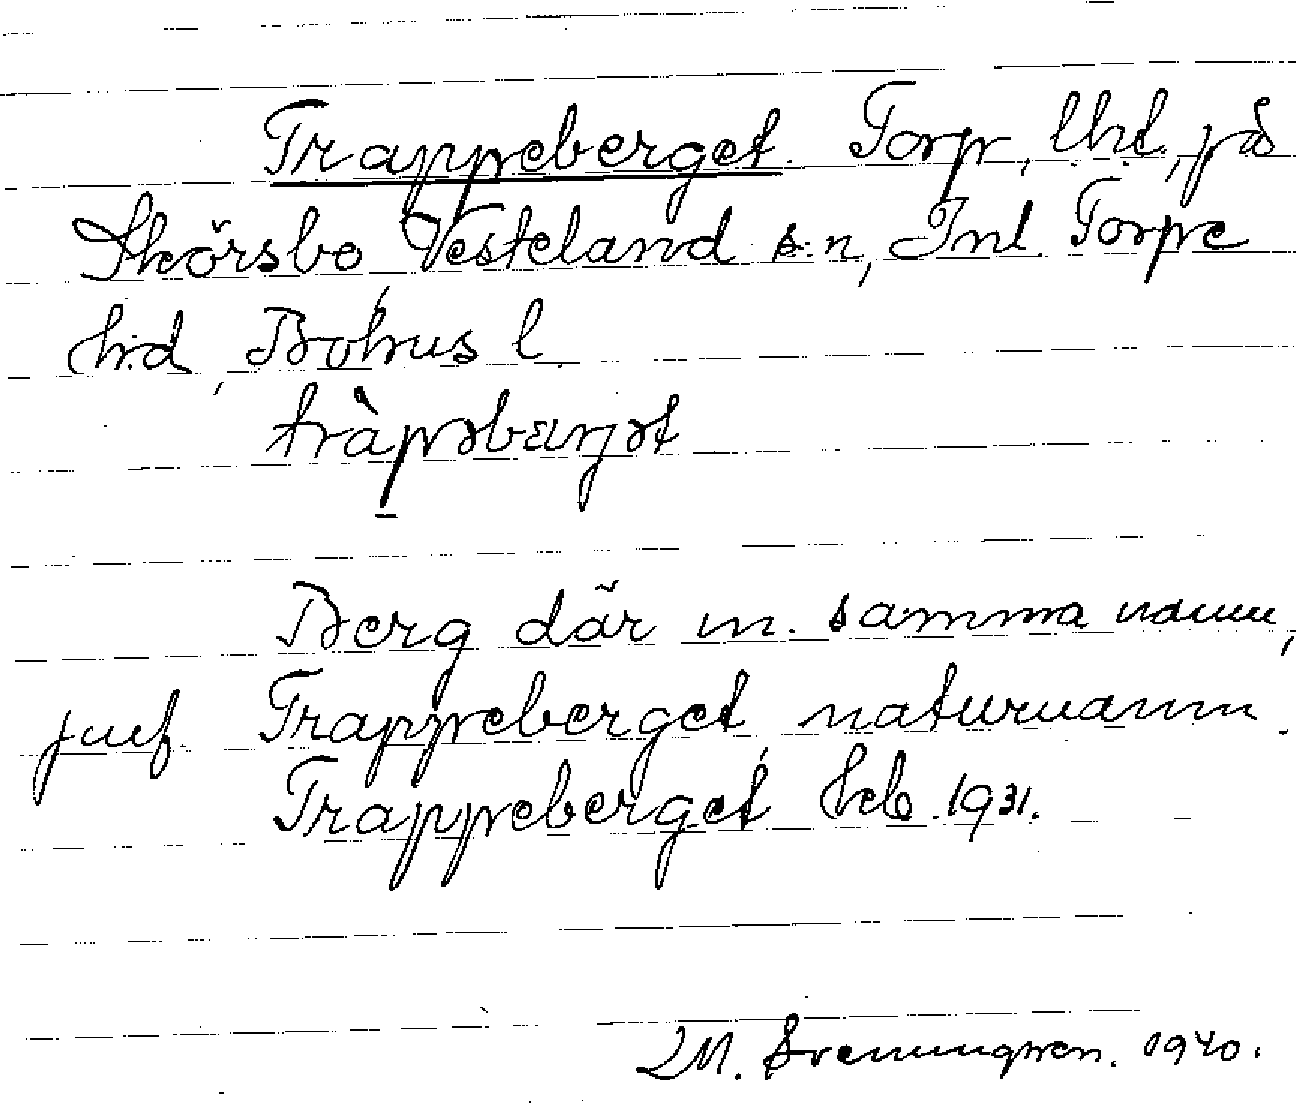 Trappeberget. Torp, lht, på
Skörsbo, Vesteland sn, Inl. Torpe
hd, Bohus l.
tràpəbærjət
Berg där m. samma namn,
jmf Trappeberget, naturnamn.
Trappeberget, heb. 1931.
M. 1940.